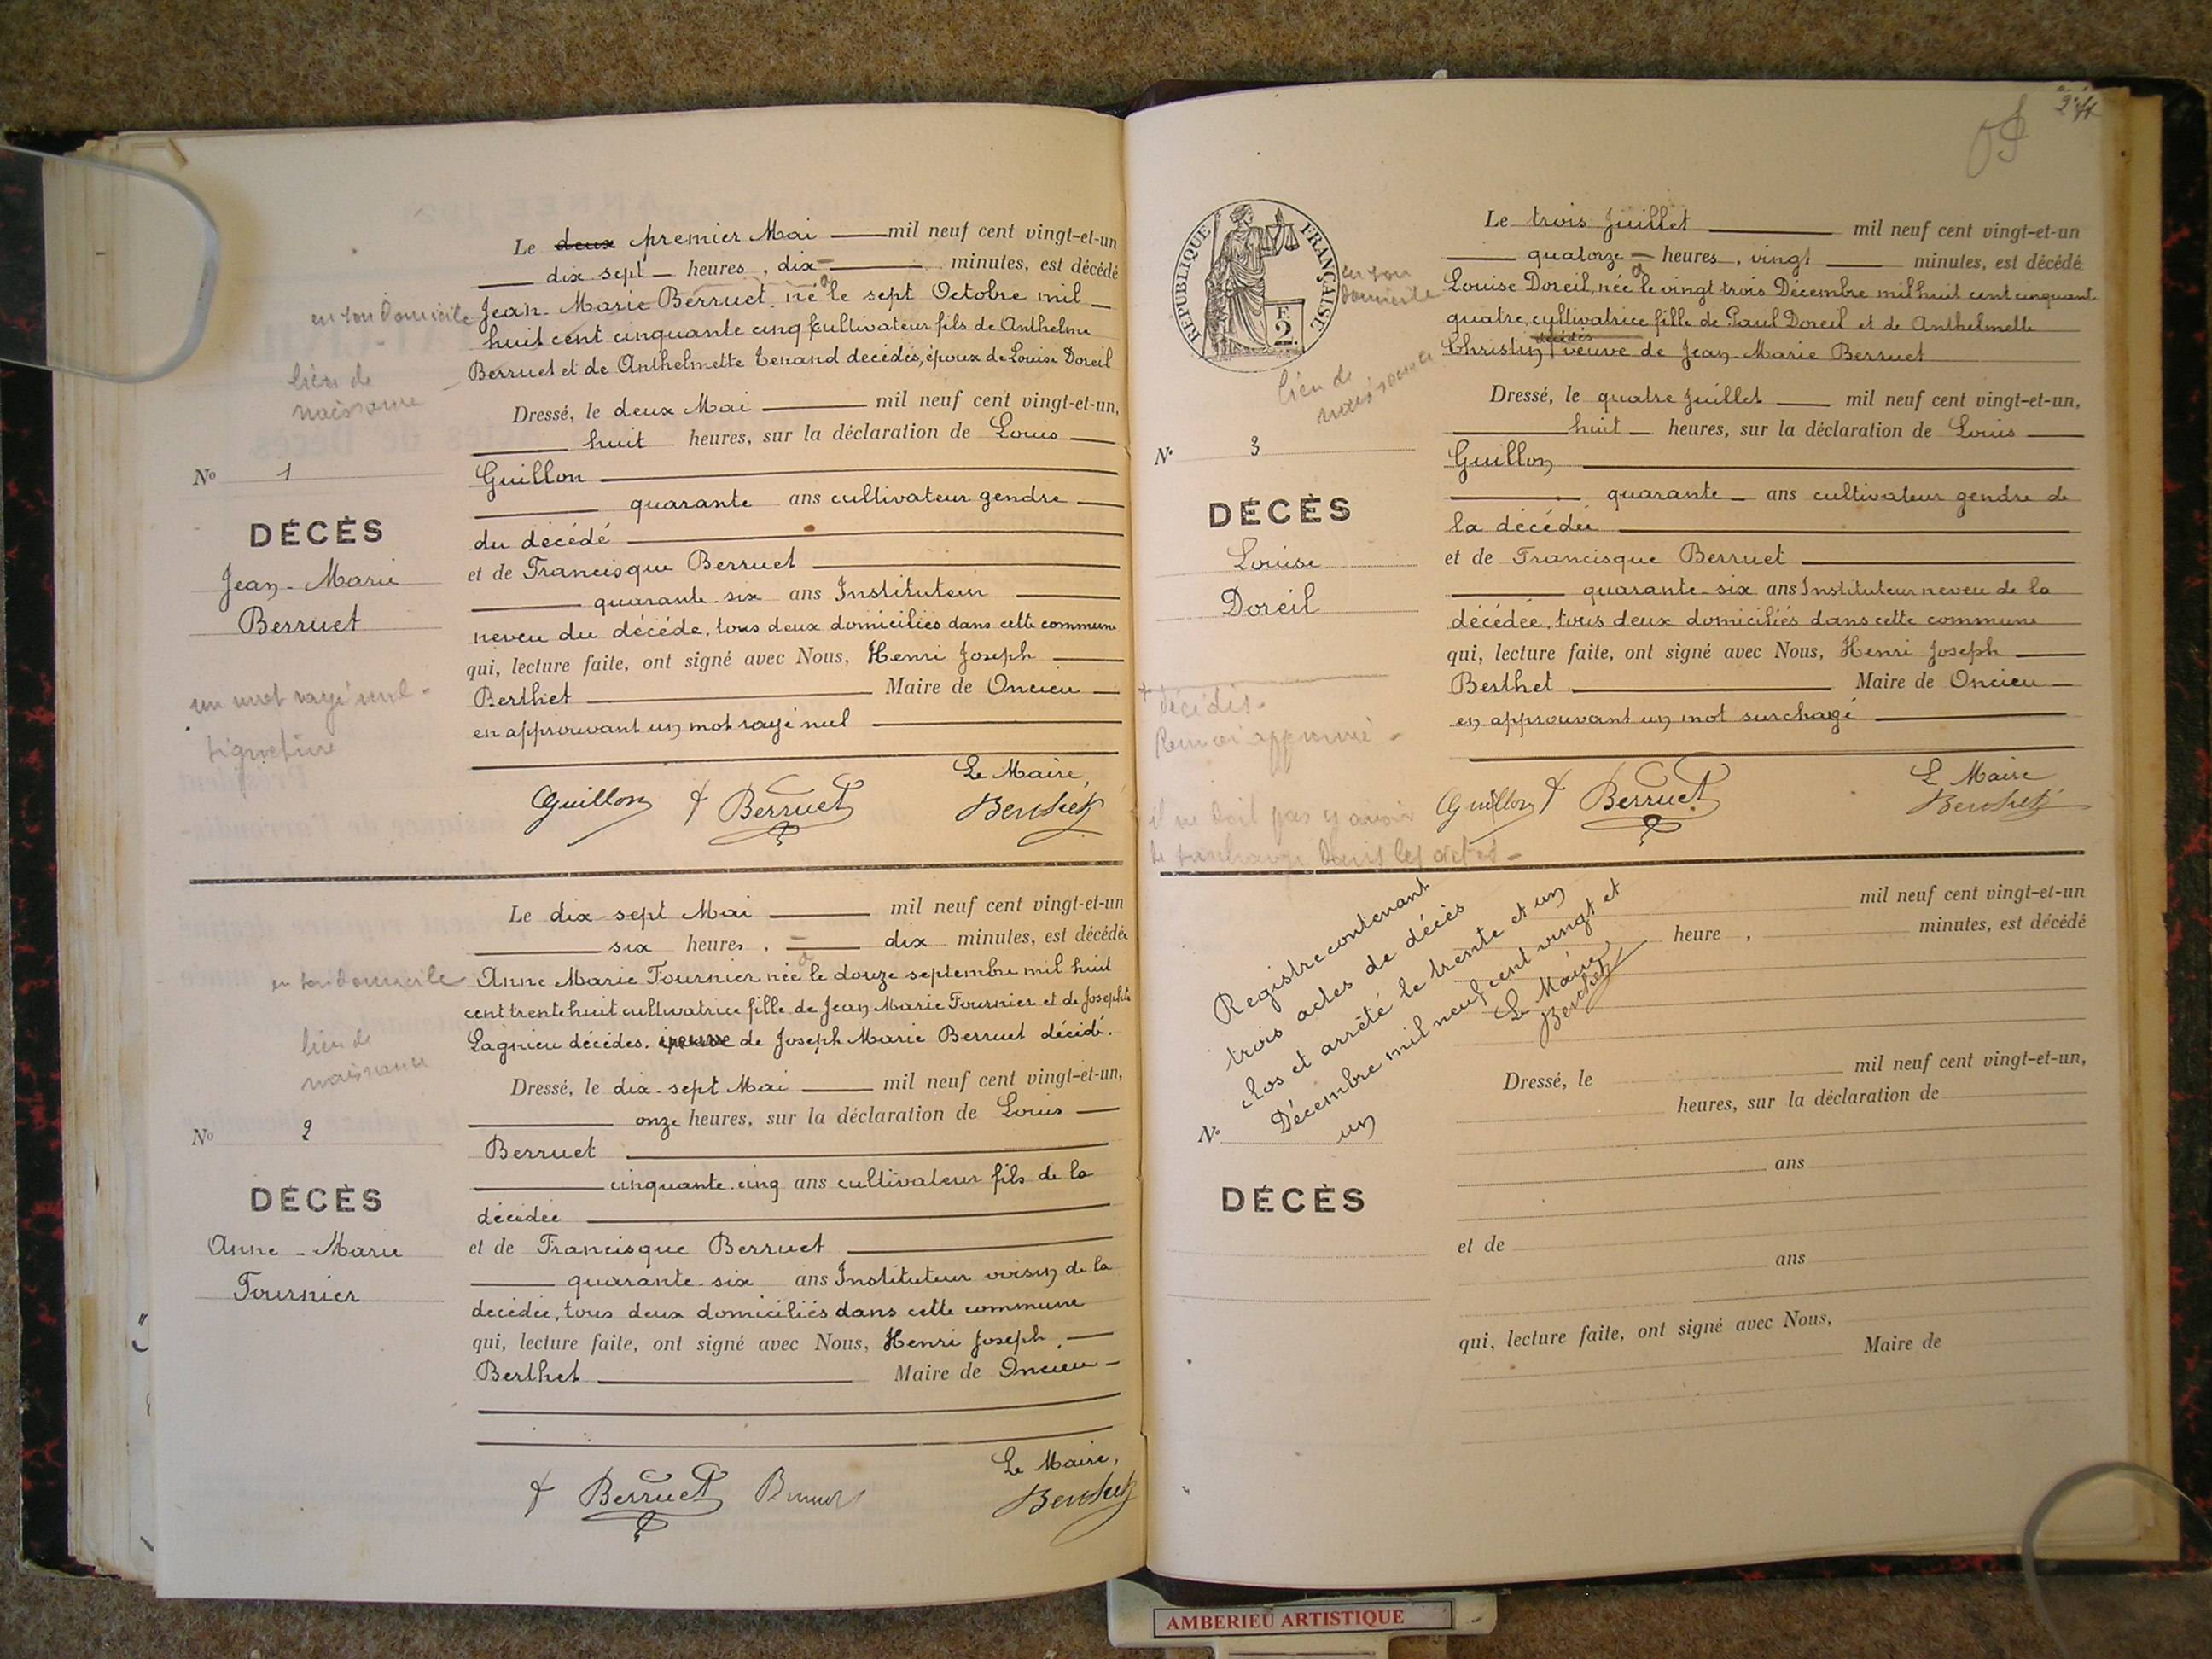 Le deux premier Mai mil neuf cent vingt-et-un
dix sept heures, dix minutes, est décédé
en son domicile Jean-Marie Berruet, né à le sept Octobre mil
huit cent cinquante cinq cultivateur fils de Anthelme
Berruet et de Anthelmette Tenand décédés, époux de Louise Doreil
lieu de
naissance
Dressé, le deux Mai mil neuf cent vingt-et-un,
huit heures, sur la déclaration de Louis
No 1
Guillon
quarante ans cultivateur gendre
DÉCÈS
du décédé
Jean-Marie
Berruet
et de Francisque Berruet
quarante-six ans Instituteur
neveu du décédé, tous deux domiciliés dans cette commune
qui, lecture faite, ont signé avec Nous, Henri Joseph
Berthet Maire de Oncieu
en approuvant un mot rayé nul
un mot rayé nul -
signature
Le Maire,
Guillon Berruet Berthet
Le dix sept Mai mil neuf cent vingt-et-un
six heures, dix minutes, est décédée
en son domicile Anne Marie Fournier née à le douze septembre mil huit
cent trente huit cultivatrice fille de Jean Marie Fournier et de Josephte
Lagnieu décédés. de Joseph Marie Berruet décédé.
lieu de
naissance
Dressé, le dix-sept Mai mil neuf cent vingt-et-un,
onze heures, sur la déclaration de Louis
No 2
Berruet
cinquante-cinq ans cultivateur fils de la
DÉCÈS
décédée
Anne-Marie
Fournier
et de Francisque Berruet
quarante-six ans Instituteur voisin de la
décédée, tous deux domiciliés dans cette commune
qui, lecture faite, ont signé avec Nous, Henri Joseph
Berthet Maire de Oncieu
Le Maire,
Berruet Berruet Berthet
RÉPUBLIQUE FRANÇAISE
E.
2.
Le trois Juillet mil neuf cent vingt-et-un
quatorze heures, vingt minutes, est décédé
en son
domicile
Louise Doreil, née à le vingt trois Décembre mil huit cent cinquante
quatre, cultivatrice fille de Paul Doreil et de Anthelmette
décédés
Christin veuve de Jean-Marie Berruet
lieu de
naissance
Dressé, le quatre Juillet mil neuf cent vingt-et-un,
huit heures, sur la déclaration de Louis
No 3
Guillon
quarante ans cultivateur gendre de
DÉCÈS
la décédée
Louise
Doreil
et de Francisque Berruet
quarante-six ans Instituteur neveu de la
décédée, tous deux domiciliés dans cette commune
qui, lecture faite, ont signé avec Nous, Henri Joseph
Berthet Maire de Oncieu
en approuvant un mot surchagé
+ décédés.
Renvoi approuvé -
il ne doit pas y avoir
de surcharge dans les actes -
Le Maire
Guillon Berruet Berthet
Registre contenant
trois actes de décès
clos et arrêté le trente et un
Décembre mil neuf cent vingt et
un
Le Maire
Berthet
mil neuf cent vingt-et-un
heure, minutes, est décédé
Dressé, le mil neuf cent vingt-et-un,
heures, sur la déclaration de
No
ans
DÉCÈS
et de
ans
qui, lecture faite, ont signé avec Nous,
Maire de
AMBERIEU ARTISTIQUE